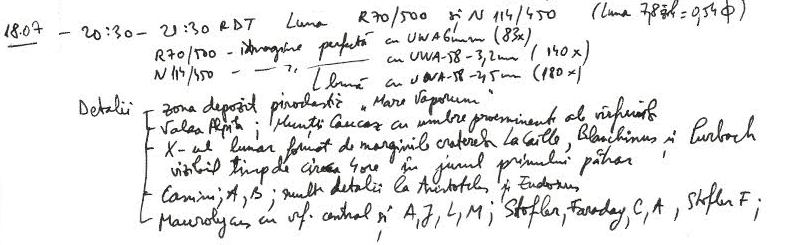 18.07 - 20:30 - 21:30 RDT Luna R70/500 și N 114/450 (Luna 7,8zh = 0,54Φ)
R70/500 - imagine perfectă cu UWA6mm (83x)
N 114/450 - — " — cu UWA-58-3,2mm (140x)
bună cu UWA-58-2,5mm (180x)
Detalii - zona depozit piroclastic "Mare Vaporum"
- Valea Alpină; Munții Caucaz cu umbre proeminente ale vârfurilor
- X-ul lunar format de marginile craterelor La Caille, Blanchinus și Purbach
vizibil timp de circa 4 ore în jurul primului pătrar
- Cassini; A, B; multe detalii la Aristoteles și Eudoxus
- Maurolycus cu vf. central și A, J, L, M; Stofler, Faraday, C, A, Stofler F;